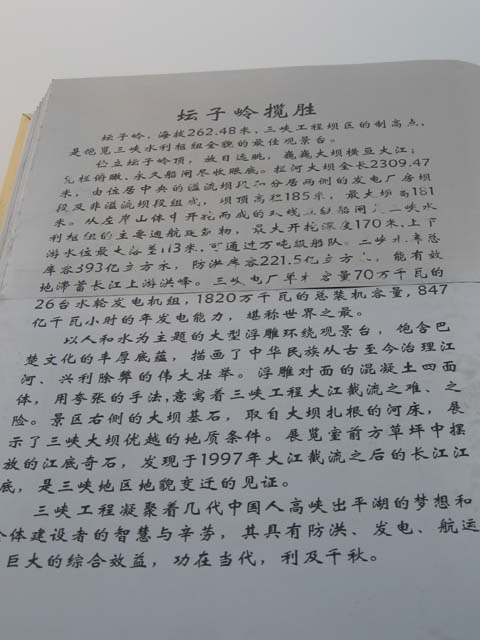 坛子岭揽胜
坛子岭，海拔262.48米，三峡工程坝区的制高点，
是他览三峡水利枢纽全貌的最佳观景台。
伫立坛子岭顶，放目远眺，巍巍大坝横亘大江；
凭栏俯瞰，永久船闸尽收眼底。拦河大坝全长2309.47
米，由位居中央的溢流坝段和分居两侧的发电厂房坝
段及非溢流坝段组成，坝顶高程185米，最大坝高181
米。从左岸山体中开挖而成的双线五级船闸是三峡水
利枢纽的主要通航建筑物，最大开挖深度170米，上下
游水位最大落差113米，可通过万吨级船队。三峡水库总
库容393亿立方米，防洪库容221.5亿立方米，能有效
地滞蓄长江上游洪峰。三峡电厂单机容量70万千瓦的
26台水轮发电机组，1820万千瓦的总装机容量，847
亿千瓦小时的年发电能力，堪称世界之最。
以人和水为主题的大型浮雕环绕观景台，饱含巴
楚文化的丰厚底蕴，描画了中华民族从古至今治理江
河、兴利除弊的伟大壮举。浮雕对面的混凝土四面
体，用夸张的手法，意寓着三峡工程大江截流之难、之
险。景区右侧的大坝基石，取自大坝扎根的河床，展
示了三峡大坝优越的地质条件。展览室前方草坪中摆
放的江底奇石，发现于1997年大江截流之后的长江江
底，是三峡地区地貌变迁的见证。
三峡工程凝聚着几代中国人高峡出平湖的梦想和
全体建设者的智慧与辛劳，其具有防洪、发电、航运
巨大的综合效益，功在当代，利及千秋。